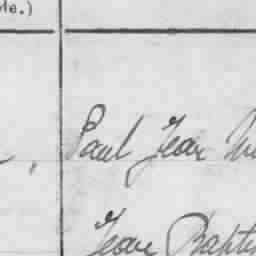 de.)
Paul Jean
Jean Bapti